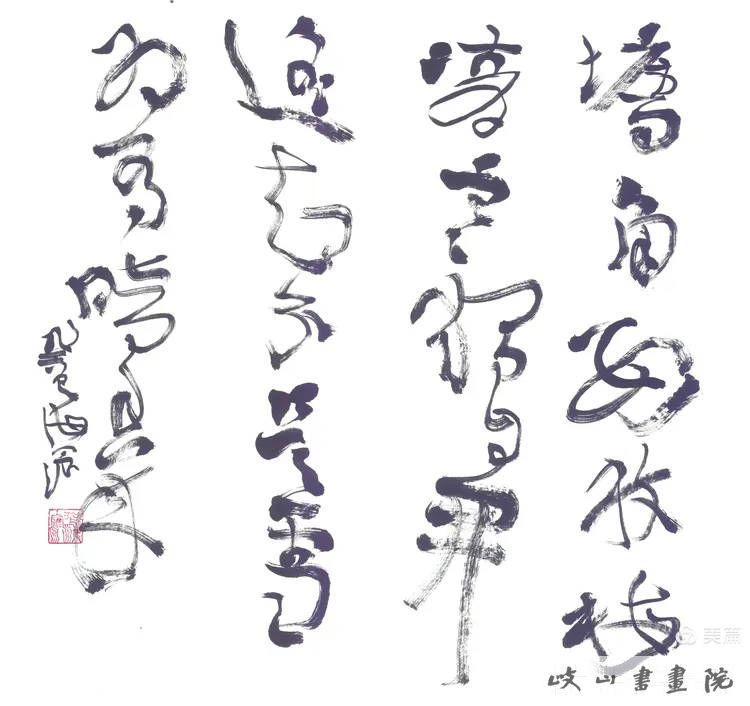 墙角数枝梅
凌寒独自开
遥知不是雪
为有暗香来
美篇
岐山書畫院